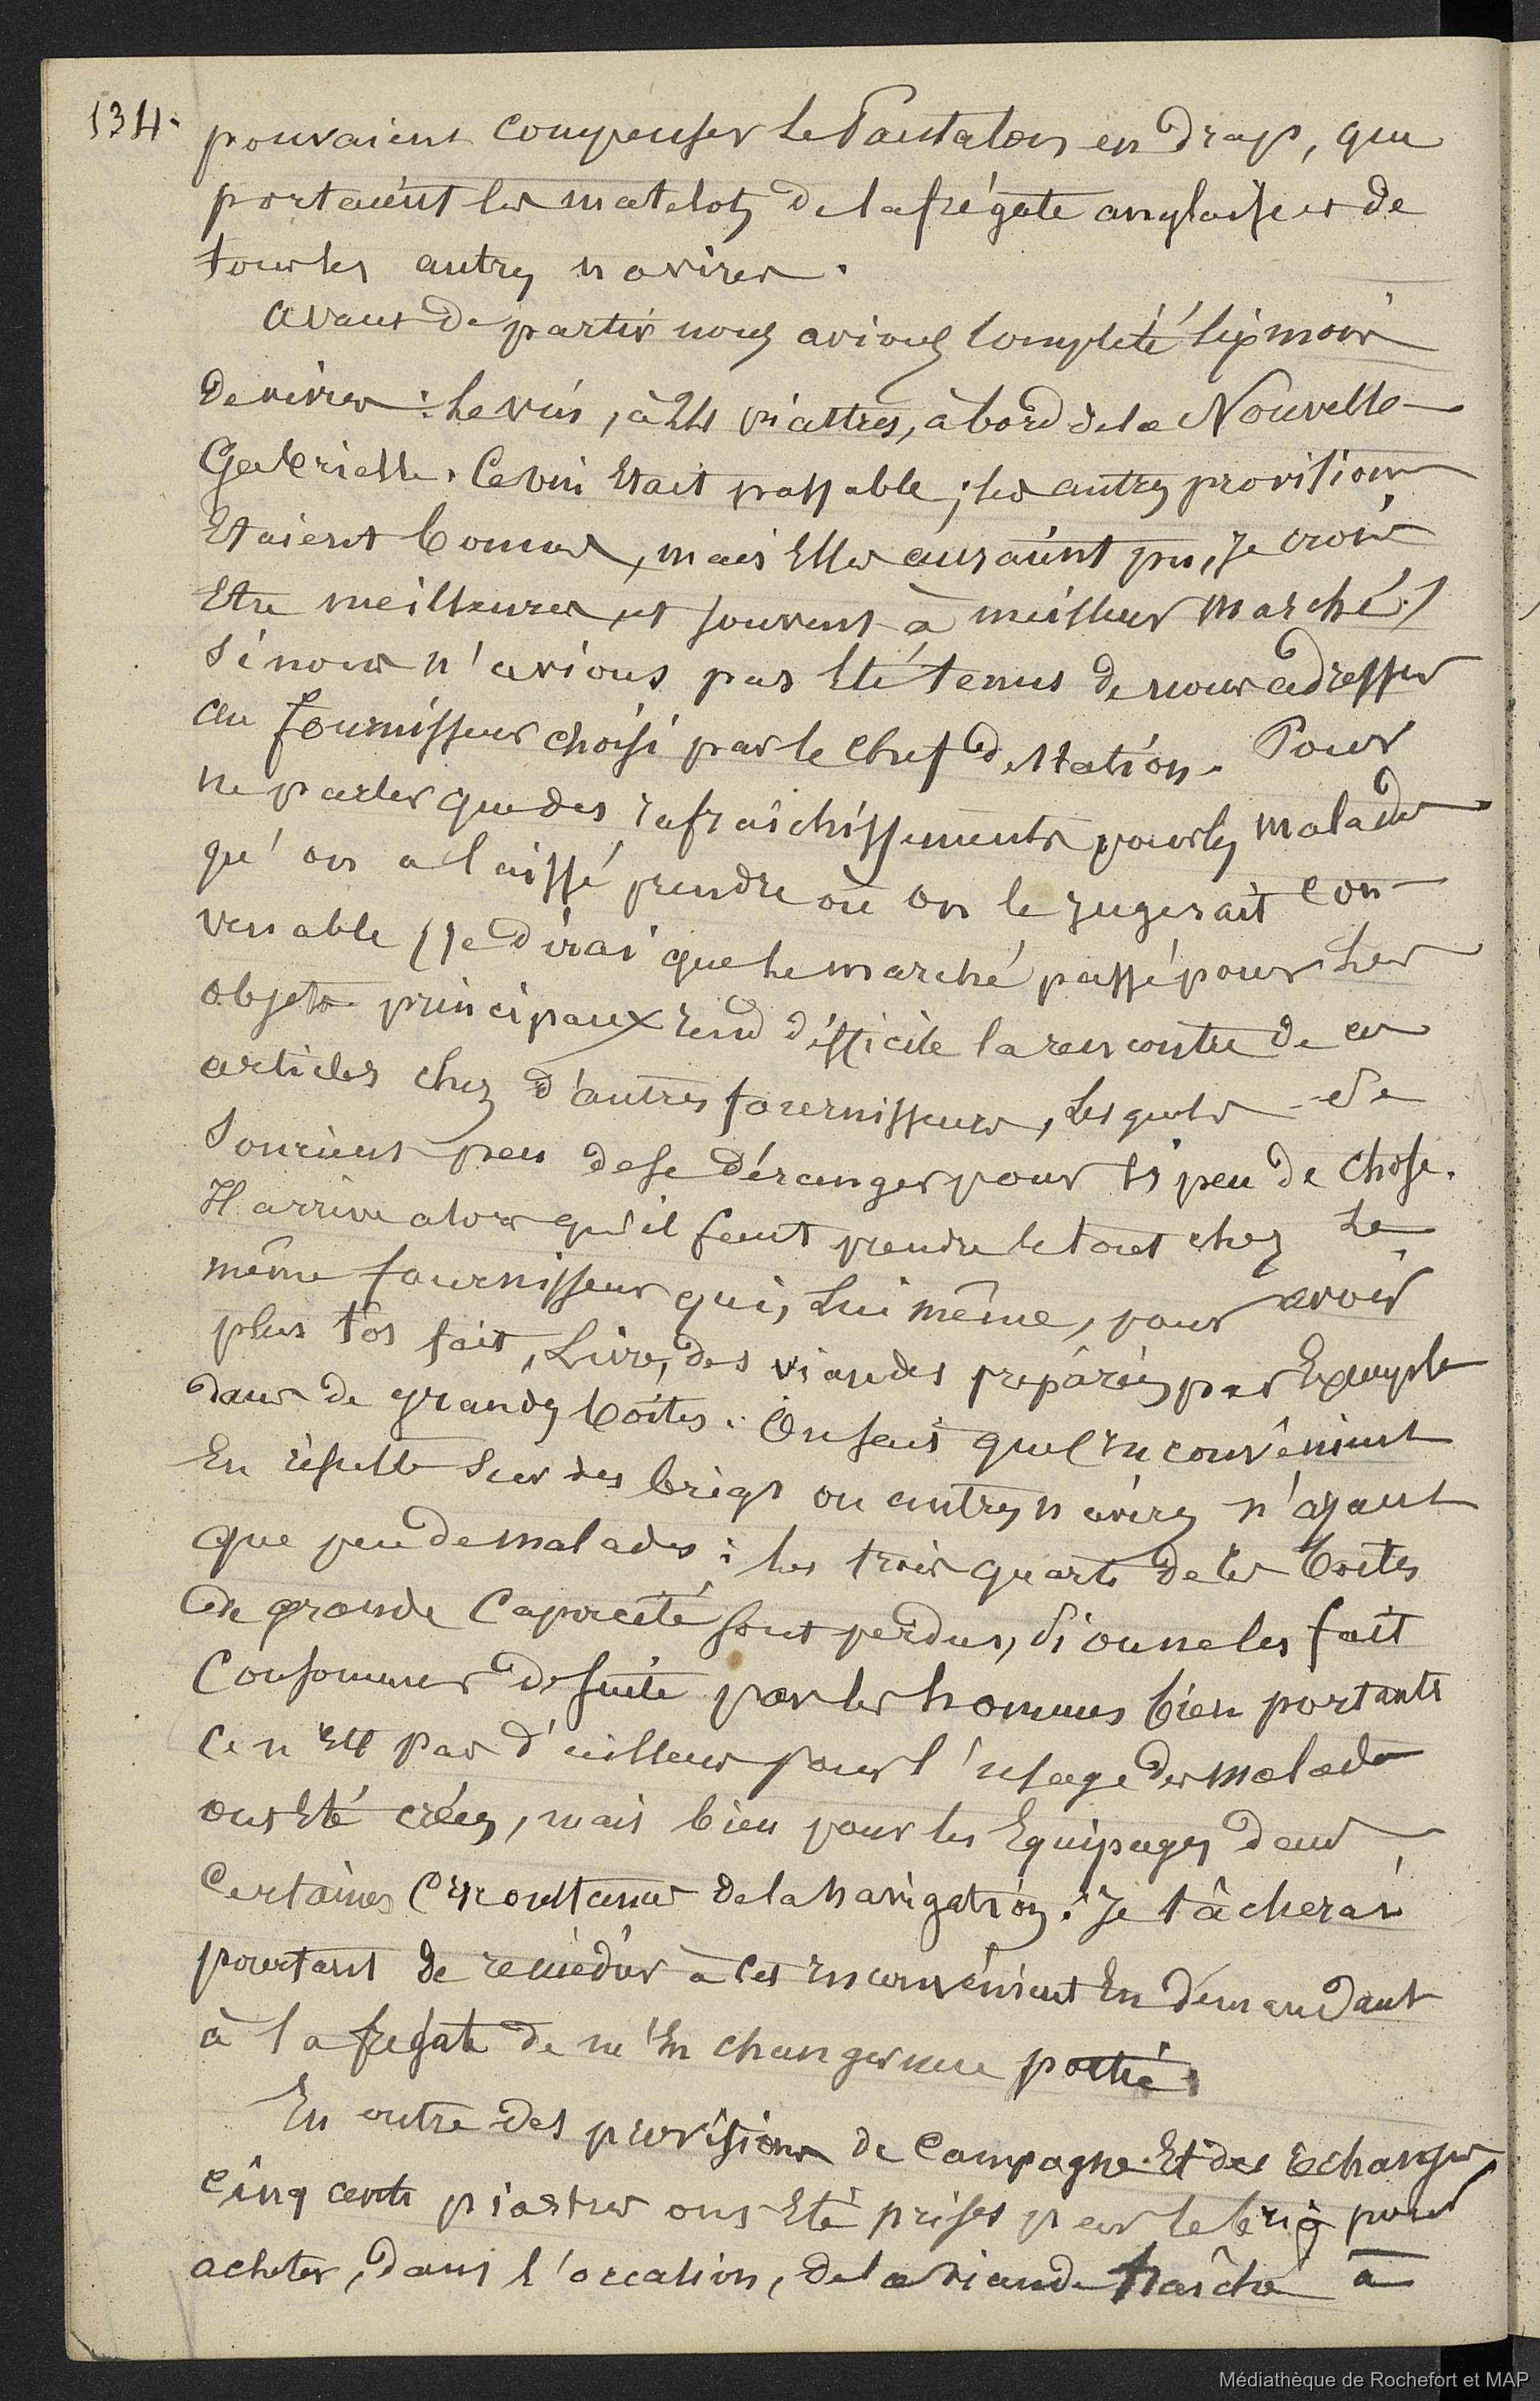 134.
pouvaient compenser le Pantalon en drap, que
portaient les matelots de la frégate anglaise et de
tous les autres navires.
Avant de partir nous avions complété six mois
de vivres : le vin, à 24 piastres, à bord de la Nouvelle
Gabrielle. Ce vin Etait passable ; les autres provisions
Etaient bonnes, mais Elles auraient pu, je crois
Etre meilleures et souvent à meilleur marché,
si nous n'avions pas Eté tenus de nous adresser
au fournisseur choisi par le chef de station. Pour
ne parler que des rafraîchissements pour les malades
qu'on a laissé prendre où on le jugerait con-
venable, je dirai que le marché passé pour les
objets principaux rend difficile la rencontre de ces
articles chez d'autres fournisseurs, lesquels se
soucient peu de se déranger pour si peu de chose.
Il arrive alors qu'il faut prendre le tout chez le
même fournisseur qui, lui même, pour avoir
plus tôt fait, livre, des viandes préparées par Exemple
dans de grandes boîtes. On sait quel inconvénient
En résulte sur des brigs ou autres navires n'ayant
que peu de malades : les trois quarts de ces boites
de grande capacité sont perdus, si on ne les fait
consommer de suite par les hommes bien portants
Ce n'Est pas d'ailleurs pour l'usage des malades
ont Eté créées, mais bien pour les Equipages dans
certaines circonstances de la navigation. Je tâcherai
pourtant de remédier à cet inconvénient En demandant
à la frégate de m'En changer une partie.
En outre des provisions de campagne Et des Echanges,
cinq cents piastres ont Eté prises par le brig pour
acheter, dans l'occasion, de la viande fraîche à
Médiathèque de Rochefort et MAP